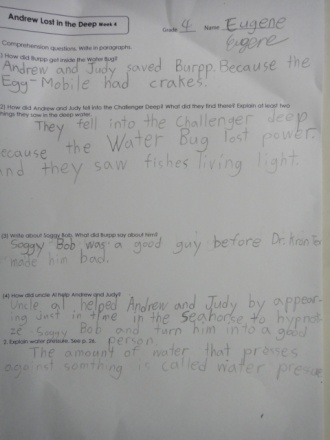 Andrew Lost in the Deep Week 4
Grade 4 Name Eugene
Eugene
Comprehension questions. Write in paragraphs.
1) How did Burpp get inside the Water Bug?
Andrew and Judy saved Burpp. Because the
Egg-Mobile had crakes.
2) How did Andrew and Judy fell into the Challenger Deep? What did they find there? Explain at least two
things they saw in the deep water.
They fell into the Challenger deep
ecause the Water Bug lost power.
nd they saw fiches living light.
(3) Write about Soggy Bob. What did Burpp say about him?
Soggy Bob was a good guy before Dr. Kron Ton
made him bad.
(4) How did uncle Al help Andrew and Judy?
Uncle al helped Andrew and Judy by appear-
ing Just in time in the Seahorse to hypnoti
ze Soggy Bob and turn him into a good
person.
2. Explain water pressure. See p. 26.
The amount of water that prosses
against somthing is called water presure.